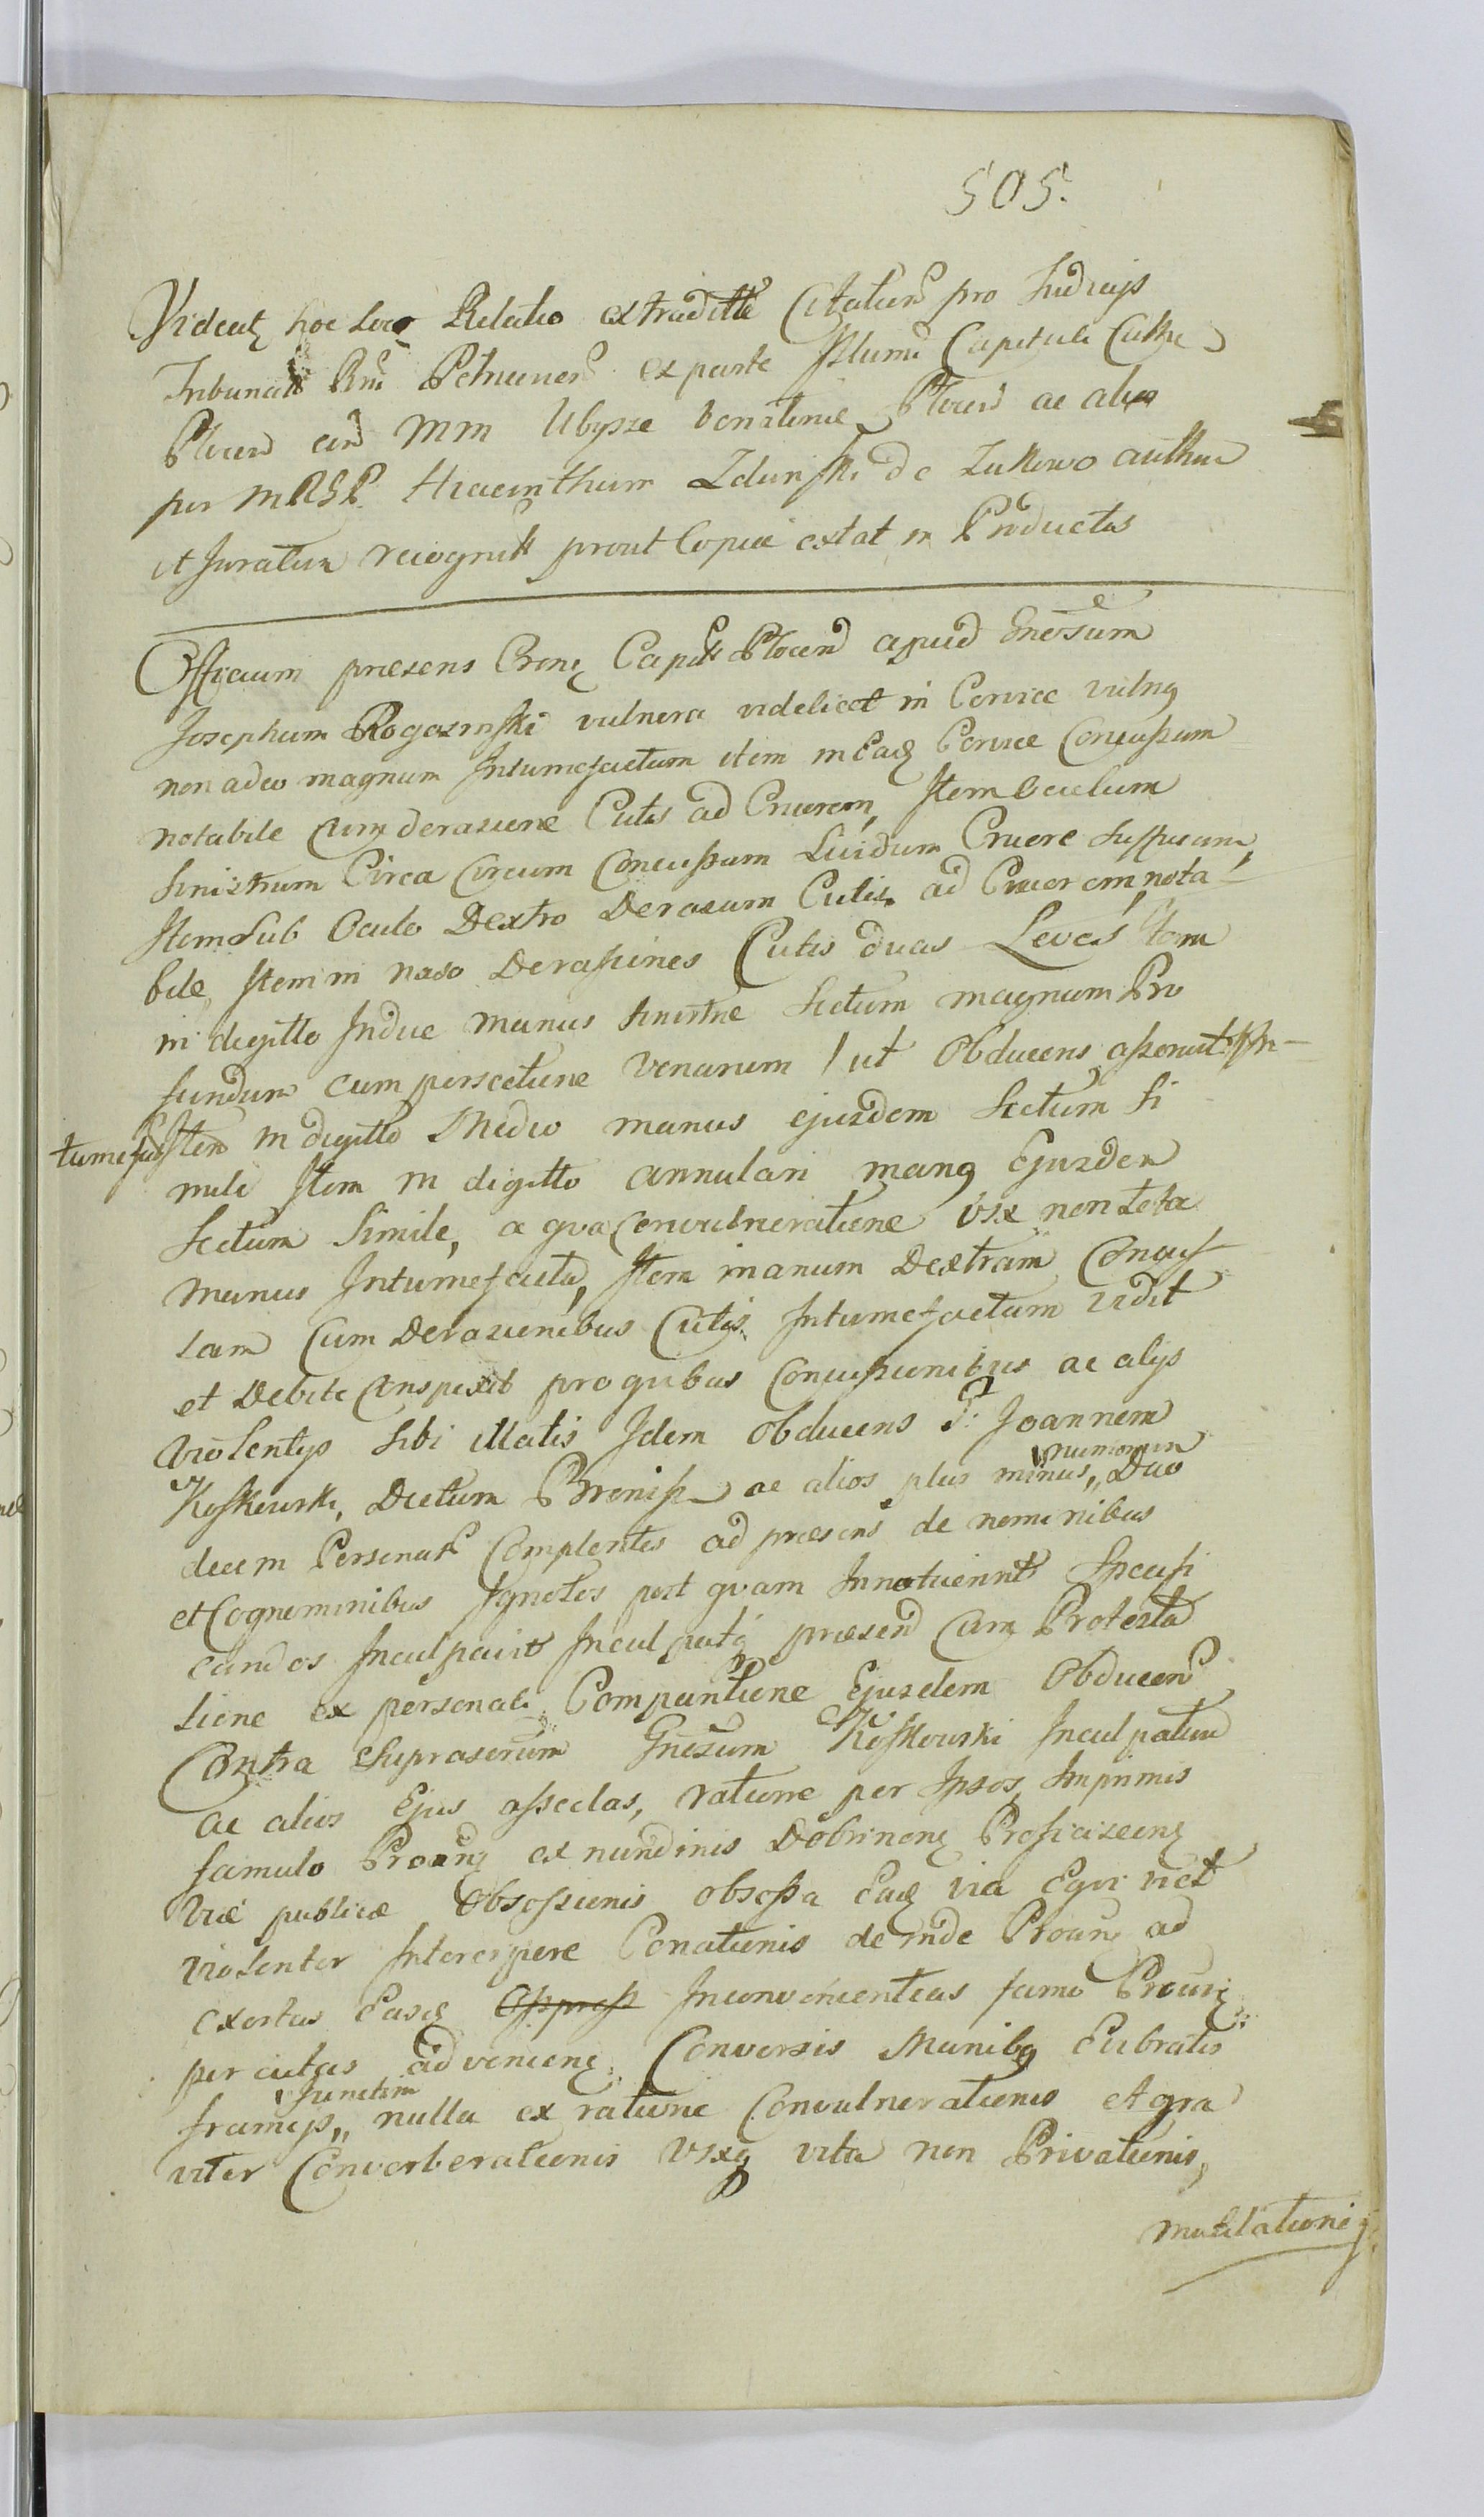 505.
Videatz hoc loco Relatio extraditte Citatur pro Judicijs
Tribunalt Rni ex parte Illumi Capituli Cathe
Plocen cum MM Ubysze Ploceñ ac alios
per MRSP. Hiacinthum Zdunski de Zukowo authen
et Juratum recognitt prout Copia extat in Productis
Officium præsens Crense Capitt Plocens apud Gnerosum
Josephum Rogozinski vulnera videlicet in Cervice vulng
non adeo magnum Intumefactum item in Eadq Cervice Concussum
notabile Cum derasione Cutis ad Cruorem, Item Oculum
Sinistrum Circa Circum Concussum Lividum Cruore suffusum,
Item Sub Oculo Dextro Derasum Cutis ad Cruorem, nota
bile, Item in naso Derasiones Cutis duas Leves Item
in digitto Indice manus sinistræ Sectum magnum Pro
fundum cum persectione venarum / ut Obducens asseruit / In-
tumefact Item in digitto Medio manus ejusdem Sectum Si
mile Item in digitto annulari mang Ejusdem
Sectum Simile, a qva Convulneratione vix non tota
manus Intumefacta, Item manum Dextram Concus
sam Cum Derasionibus Cutis Intumefactam vidit
et Debite Conspexit pro qvibus Concussionibus ac alijs
violentijs Sibi illatis Idem Obducens G: Joannem
Koskowski, Dictum Broniss ac alios plus minus „ Duo
numerum
decim Personar Complentes ad præsens de nominibus
et Cognominibus Ignotos post qvam Innotuerint Specifi
candos Inculpavit Inculpatq præsens Cum Protesta
tione ex personali Comparitione Ejusdem Obducen
Contra Suprascrum Gnesum Koskowski Inculpatum
ac alios Ejus assedas, ratione per Ipsos, Imprimis
famulo Proteng ex nundinis Dobrinens Proficiscens
Viæ publicæ Obsessionis obsessa Eadq via Eqvi
violenter Intercipere Conationis deinde ad
exortas Easdq Inconvenientias famo
per advenieng Conversis Manibq Eubratis
frameis „ nulla ex ratione Convulnerationis et gra
Junctim
viter Converberationis vixq vita non Privationis,
mutilationis